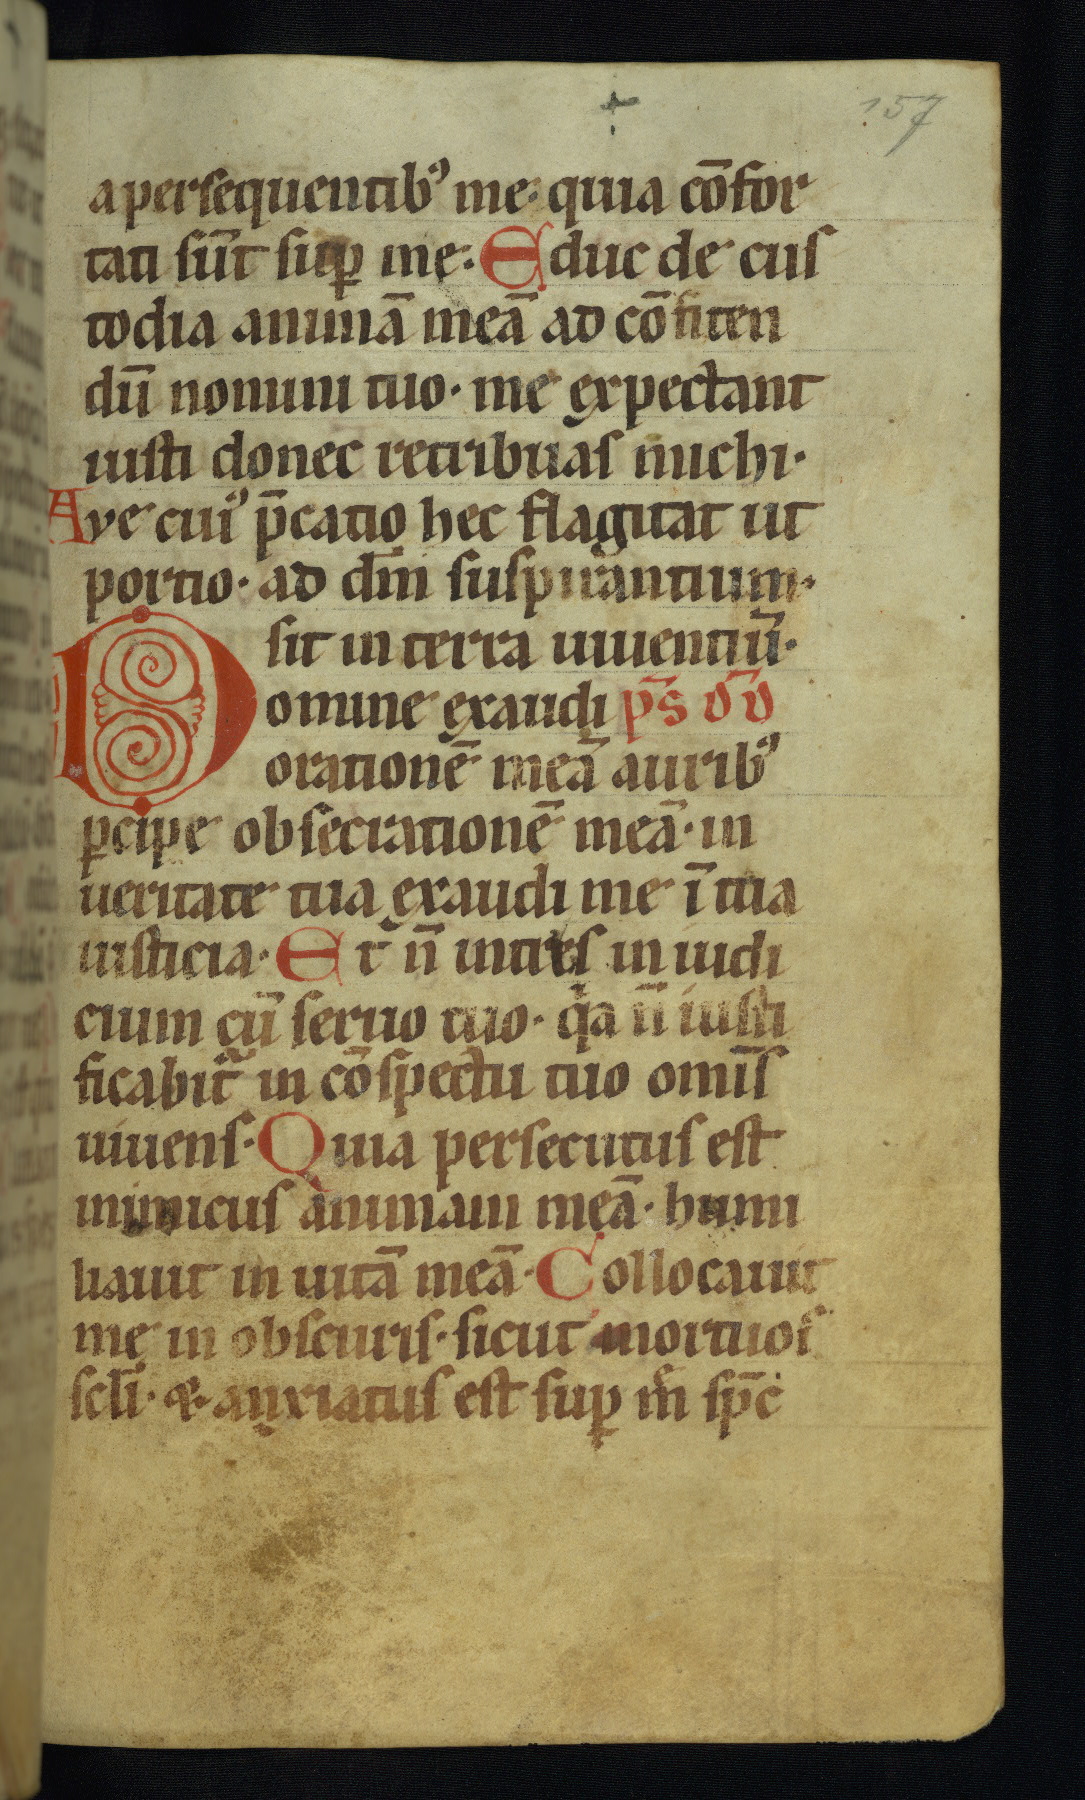 157
a persequentibꝰ me· quia cōfor
tati sūt suꝑ me· Educ de cus
todia animā meā ad cōfiten
dū nomini tuo· me expectant
iusti donec retribuas michi·
Aue cuiꝰ p̄catio hec flagitat ut
portio· ad dm̄ suspirantium·
sit in terra uiuentiū·
Domine exaudi ps̄ dd̄
orationē meā auribꝰ
ꝑcipe obsecrationē meā· in
ueritate tua exaudi me ī tua
iusticia· Et n̄ intres in iudi
cium cū seruo tuo· qͣa n̄ iusti
ficabit᷑ in cōspectu tuo omīs
uiuens· Quia persecutus est
inimicus animam meā· humi
liauit in uitā meā· Collocauit
me in obscuris· sicut mortuos
scl̄i· & anxiatus est suꝑ m̄ sp̄c